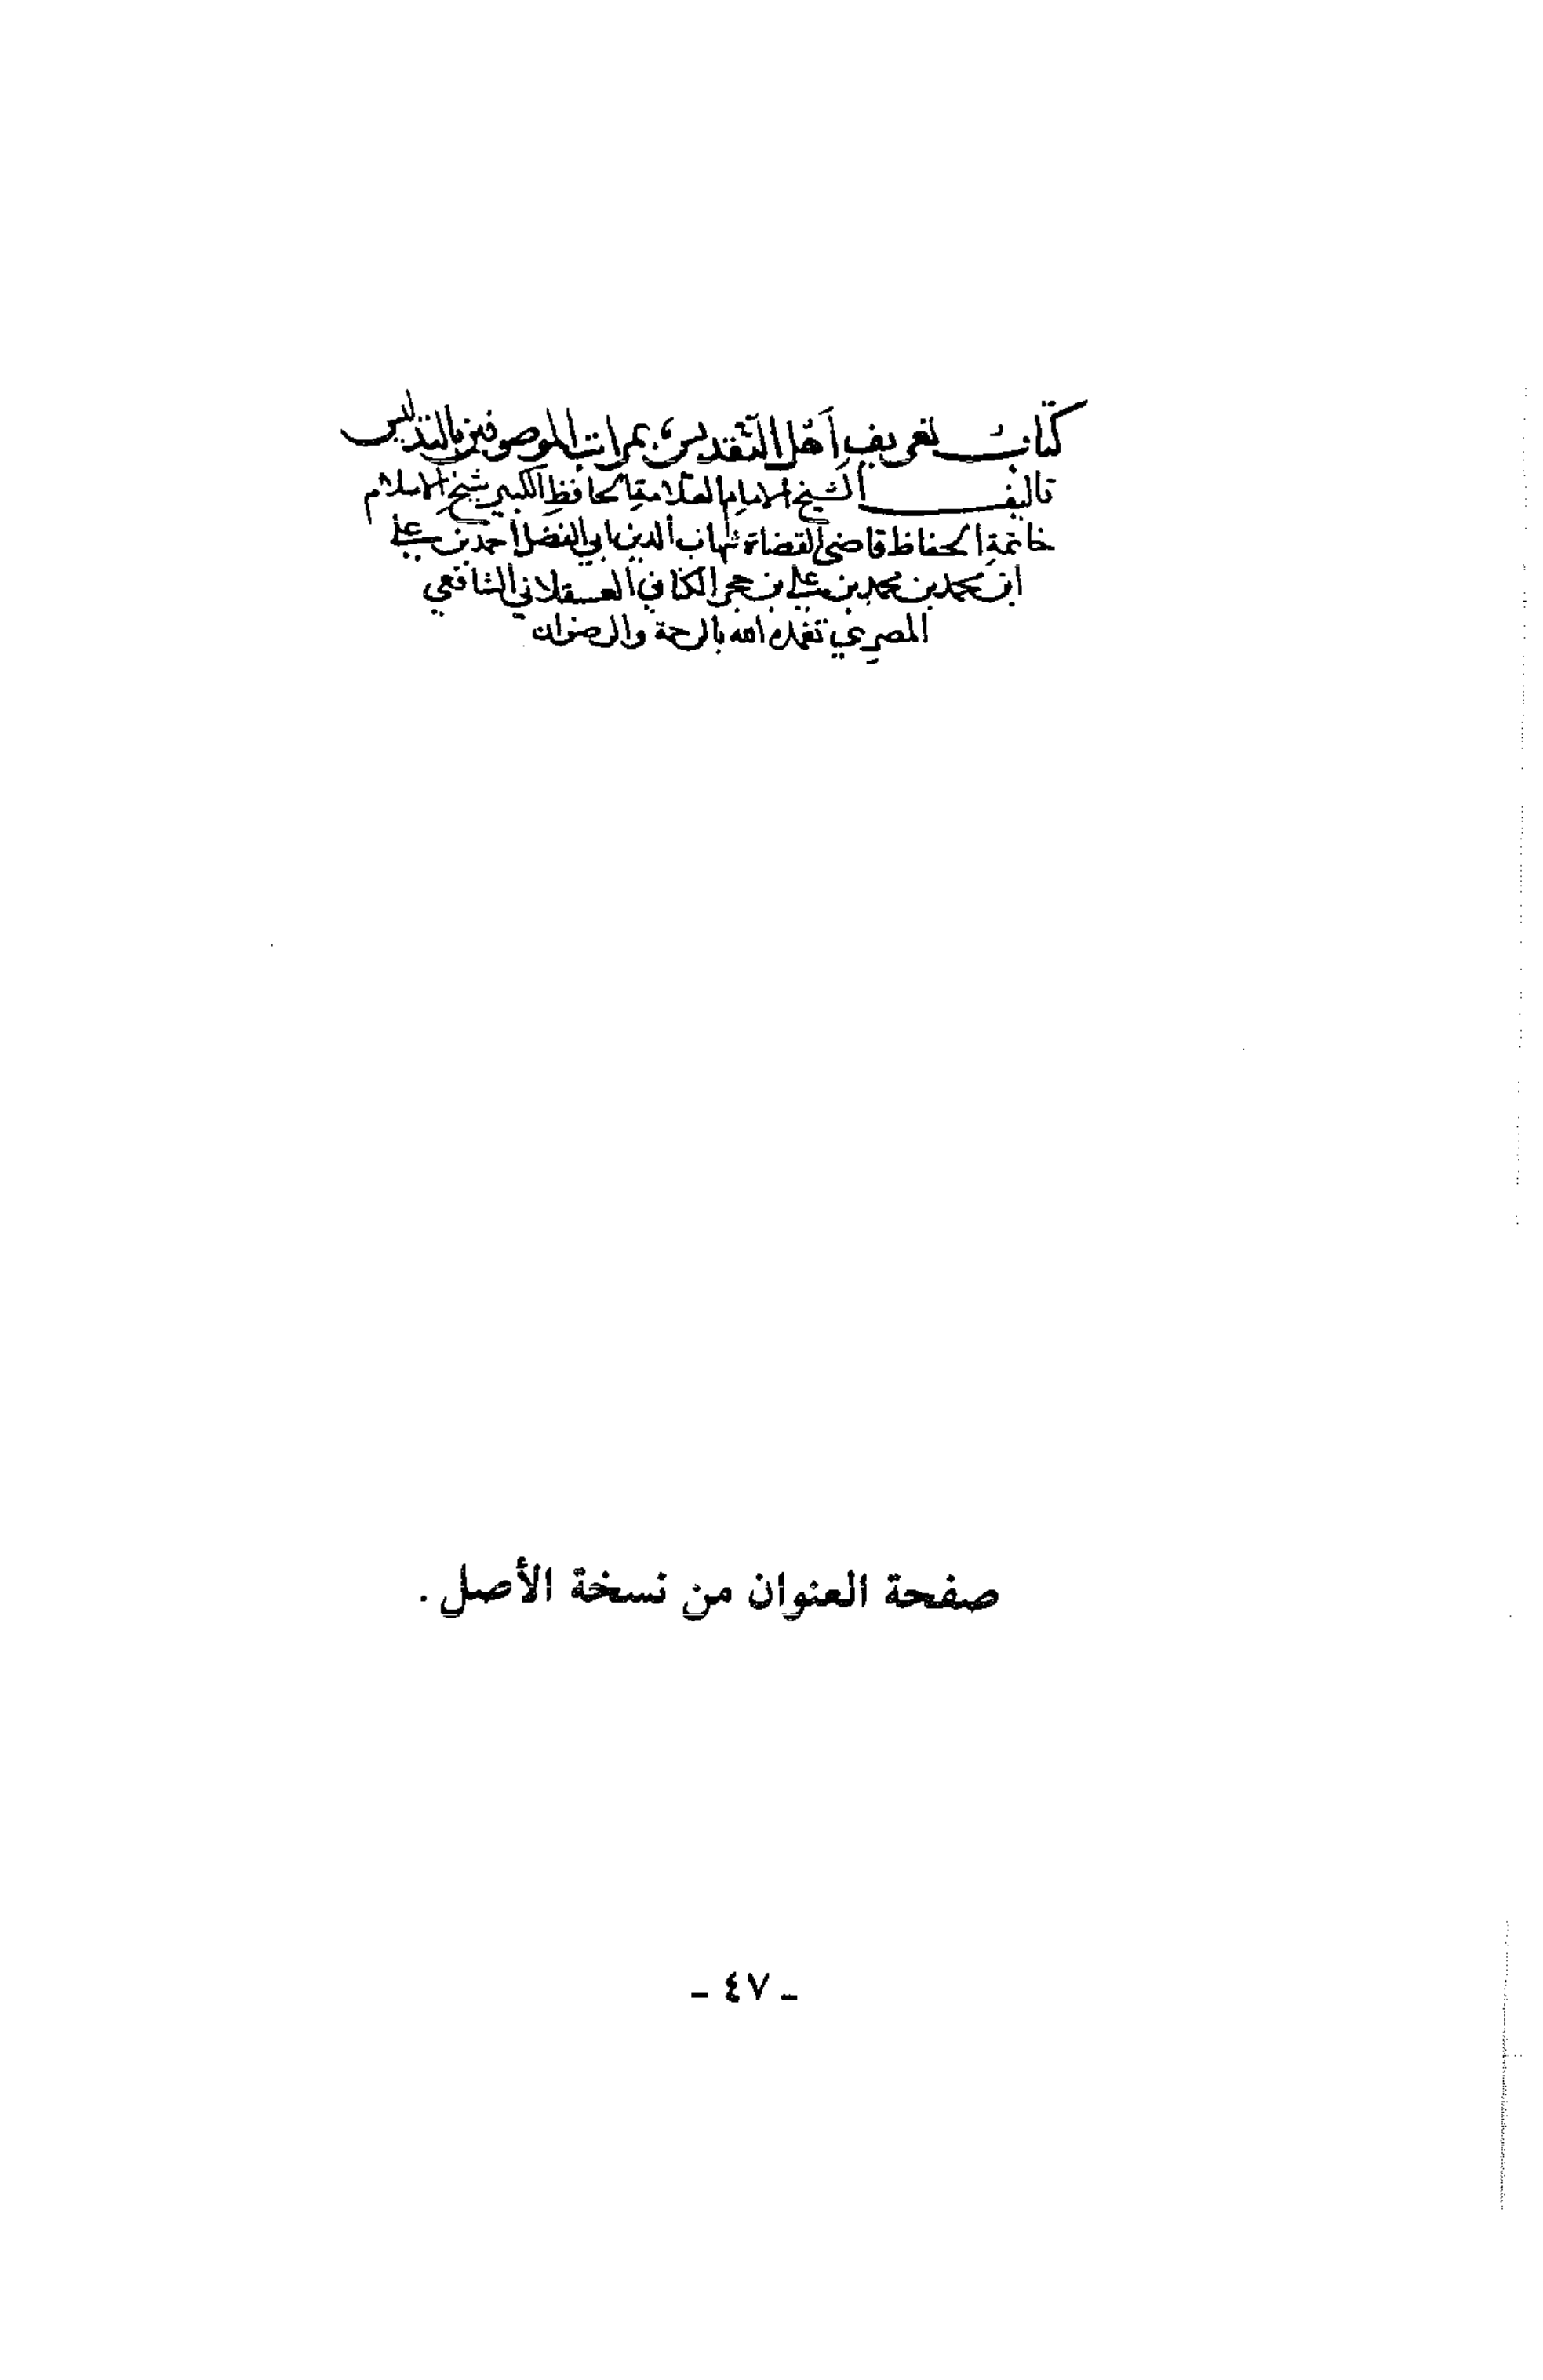 كتاب تعريف أهل التقديس بمراتب الموصوفين بالتدليس
تاليف الشيخ الامام العلامة الحافظ الكبير شيخ الاسلام
خاتمة الحفاظ قاضي القضاة شهاب الدين ابي الفضل أحمد بن علي
ابن محمد بن محمد بن علي بن حجر الكناني العسقلاني الشافعي
المصري تغمده الله بالرحمة والرضوان
صفحة العنوان من نسخة الأصل .
- ٤٧ -